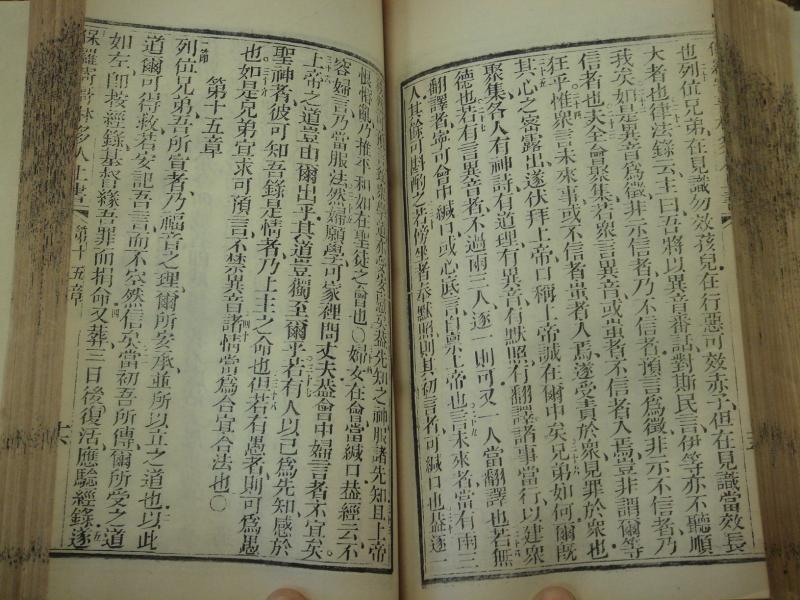 也列位兄弟在見識勿效孩兒在行惡可效赤子但在見識當效長
大者也律法錄云主曰吾將以異音番話對斯民言伊等亦不聽順
我矣如是異音為徵非示信者乃不信者預言為徵非示不信者乃
信者也夫全會聚集若眾言異音或蚩者不信者人焉豈非謂爾等
狂乎惟眾言未來事或不信者蚩者人焉遂受責於眾見罪於眾也
其心之密露出遂伏拜上帝口稱上帝誠在爾中矣兄弟如何爾既
聚集各人有神詩有道理有異音有默照有翻譯者事當行以建眾
德也若有言異音者不過兩三人逐一則可又一人當翻譯也若無
翻譯者寧可會中緘口或心底言自禀上帝也言未來者當有兩三
人其餘可斟酌之若傍坐者奉默照則其初言者可緘口也蓋逐一
先知之神服諸先知且上帝
亂乃推平和如在聖徒之會也〇婦女在會當緘口蓋經云不
容婦言乃當服法然婦願學可家裡問丈夫蓋會中婦言者不宜矣
上帝之道豈由爾出乎其道豈獨至爾乎若有人以己為先知感於
聖神者彼可知吾錄是情者乃上主之命也但若有愚者則可為愚
也如是兄弟宜求可預言不禁異音諸情當為合宜合法也〇
第十五章
列位兄弟吾所宣者乃福音之理爾所妥承並所以立之道也以此
道爾可得救若安記吾言而不空然信矣當初吾所傳爾所受之道
如左即按經錄基督緣吾罪而捐命又葬三日後復活應驗經錄遂
保羅寄哥林多人上書 第十五章 十六